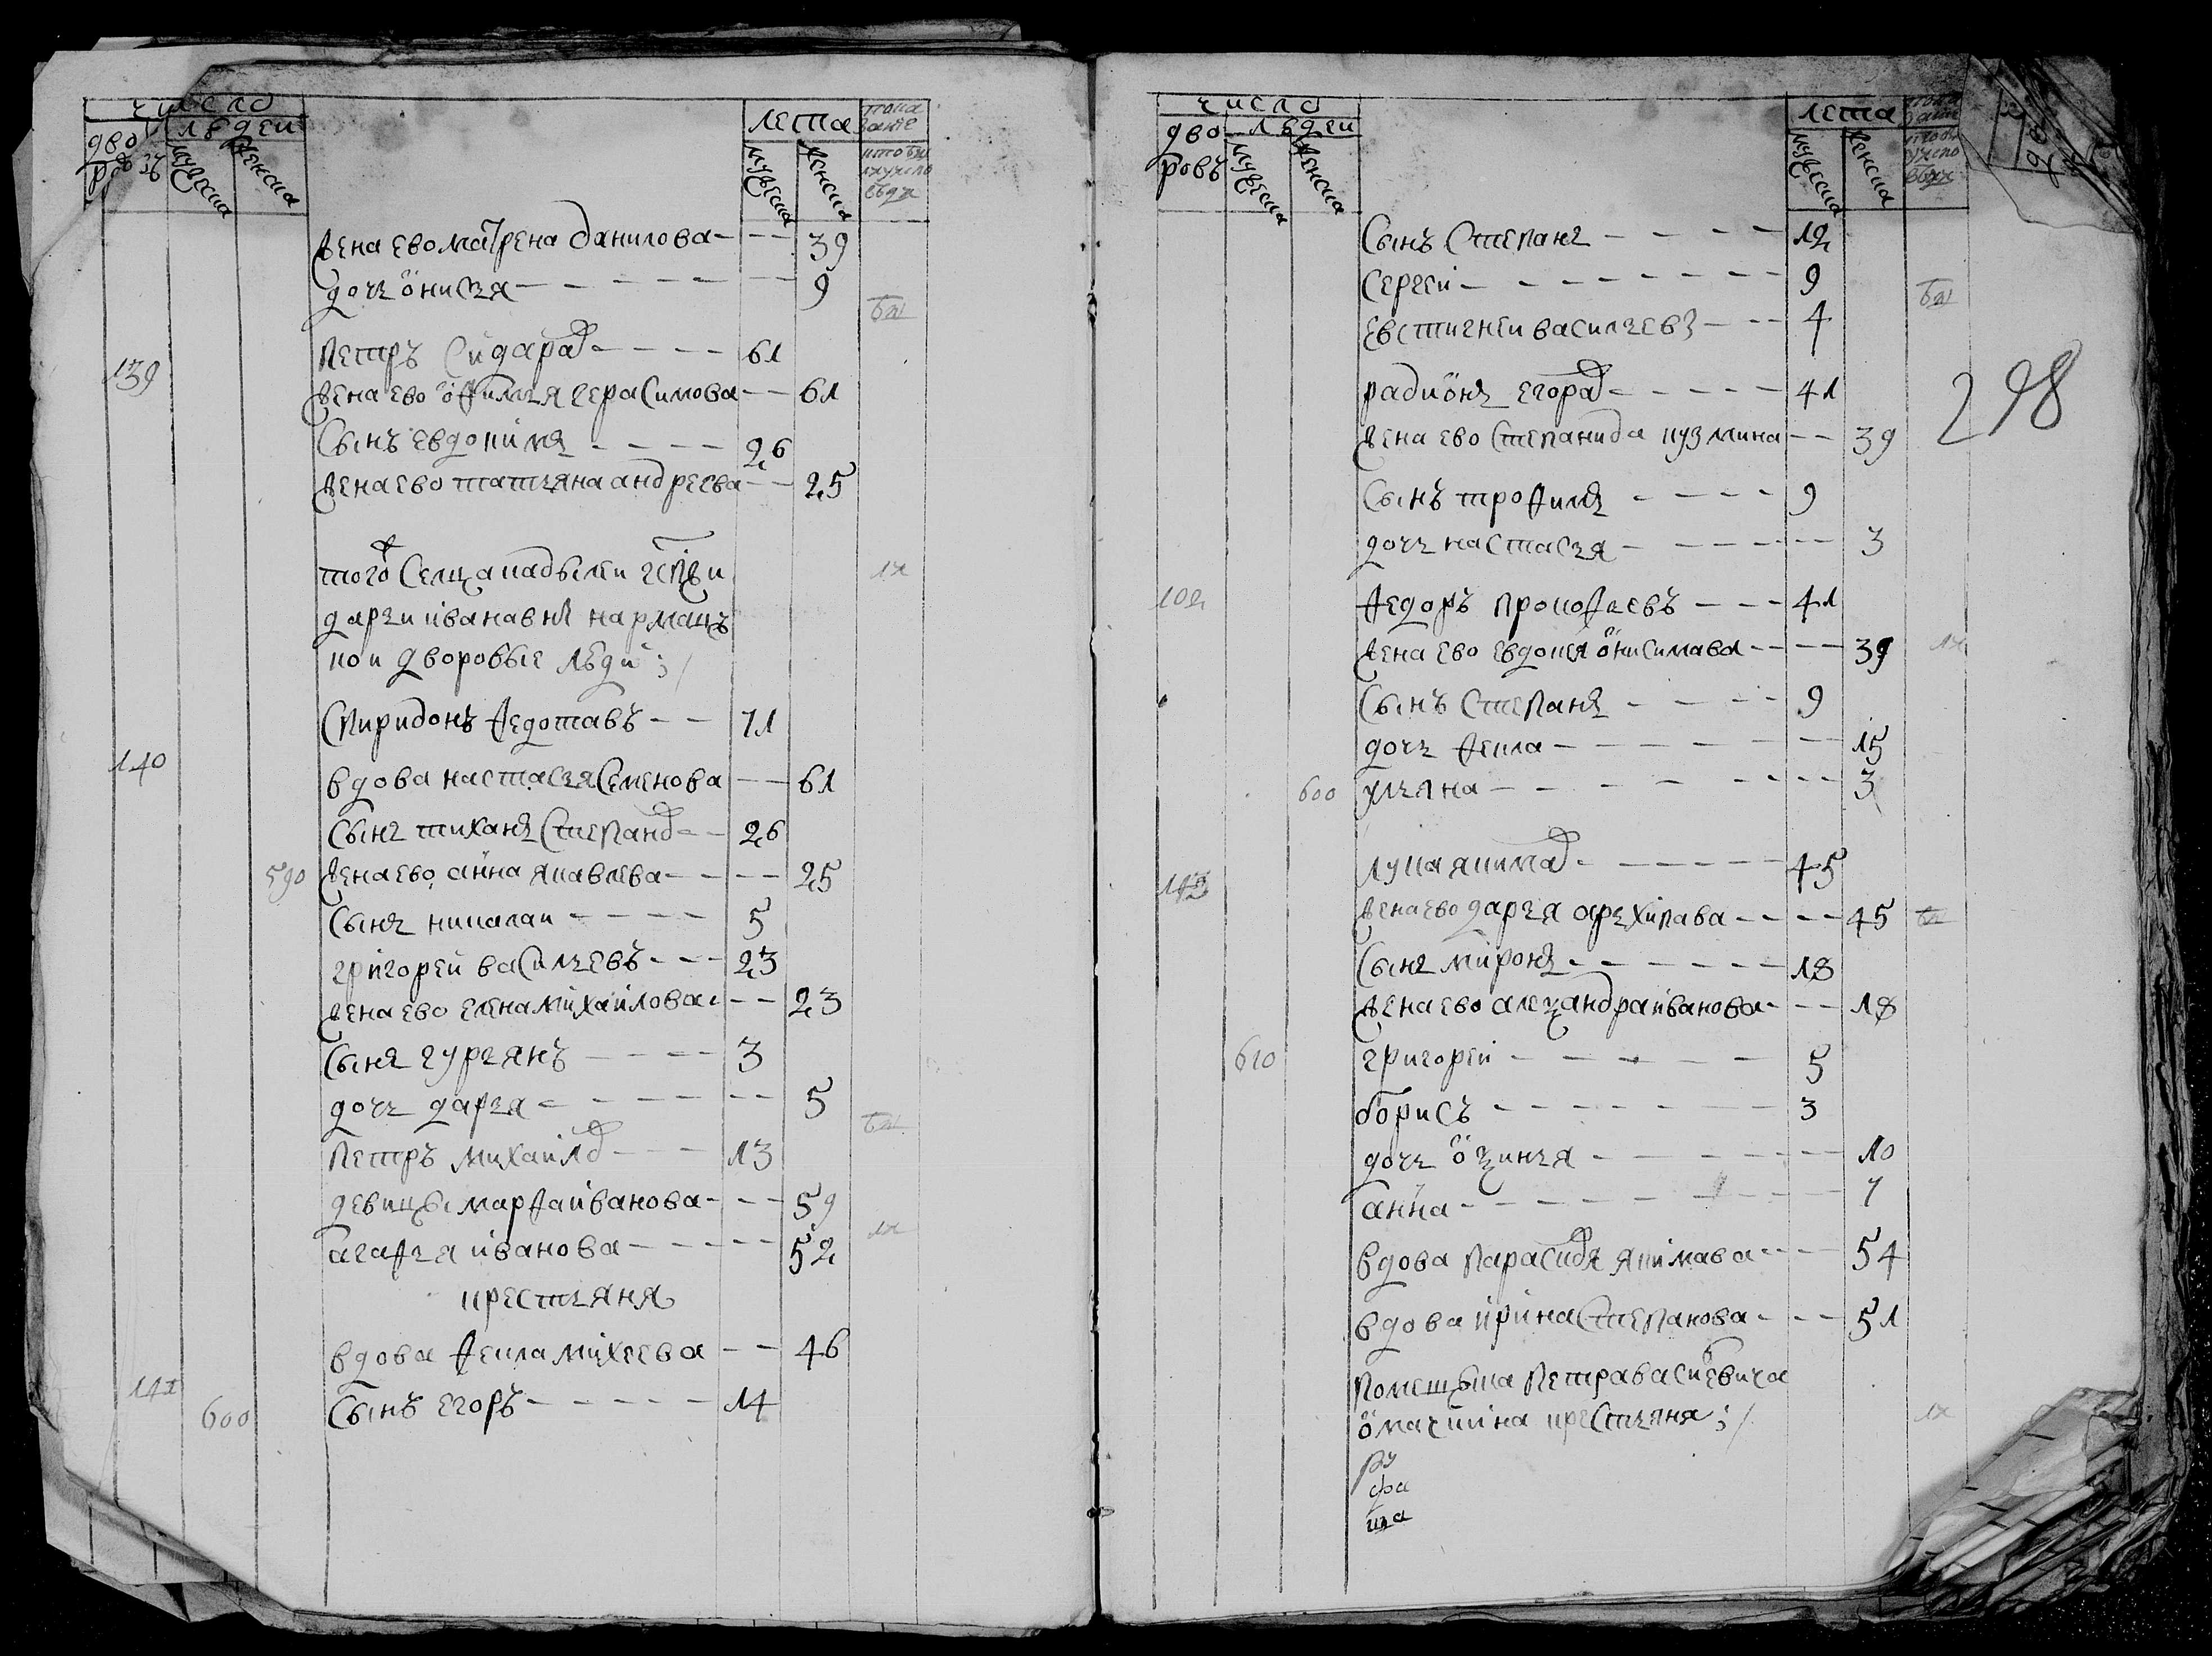 число
дво
ровъ
людеи
мужеска
женска
лета
мужеска
женска
пока
зание
жена ево матрена данилова 39
дочь онисья 9
бы
139 петръ сидаров 61
жена ево офимья герасимова 61
сынъ евдокимъ 26
жена ево татьяна андреева 25
того сельца
дарьи ивановны
дворовые люди
их
спиридонъ федотавъ 71
140
вдова настасья семенова 61
сынъ тиханъ степанов 26
590 жена ево анна яковлева 25
сынъ никалаи 5
григореи васильевъ 23
жена ево елена михаилова 23
сынъ гурьянъ 3
дочь дарья 5
бы
петръ михаилов 13
девицы марфа иванова 59
агафья иванова 52
их
крестьяня
вдова фекла михеева 46
141
600 сынъ егоръ 14
число
дво
ровъ
людеи
мужеска
женска
лета
мужеска
женска
298
сынъ степанъ 12
сергеи 9
бы
евстигнеи васильевъ 4
радионъ егоров 41
жена ево степанида кузмина 39
сынъ трофимъ 9
дочь настасья 3
102 федоръ прокофьевъ 41
жена ево евдокея онисимава 39
их
сынъ степанъ 9
дочь фекла 15
600 ульяна 3
лука якимов 45
143
жена ево дарья архипава 45
бы
сынъ миронъ 18
жена ево александра иванова 18
610 григореи 5
борисъ 3
дочь оксинья 10
анна 7
вдова парасковя якимава 54
вдова ирина степанова 51
помещика петра васильевича
крестьяня
их
ру
фа
ка